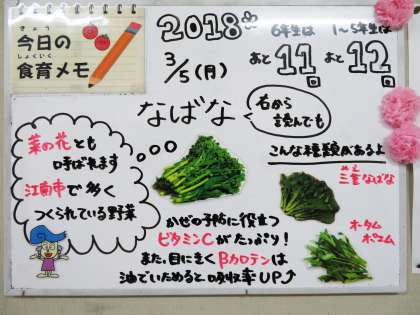 きょう
今日の
しょくいく
食育メモ
2018
3/5(月)
6年生は
あと11回
1～5年生は
あと12回
なばな
右から
読んでも
菜の花とも
呼ばれます
江南市で多く
つくられている野菜
こんな種類があるよ
みえ
三重なばな
オータム
ポエム
かぜの予防に役立つ
ビタミンCがたっぷり!
また、目にきくβカロテンは
油でいためると吸収率UP↑